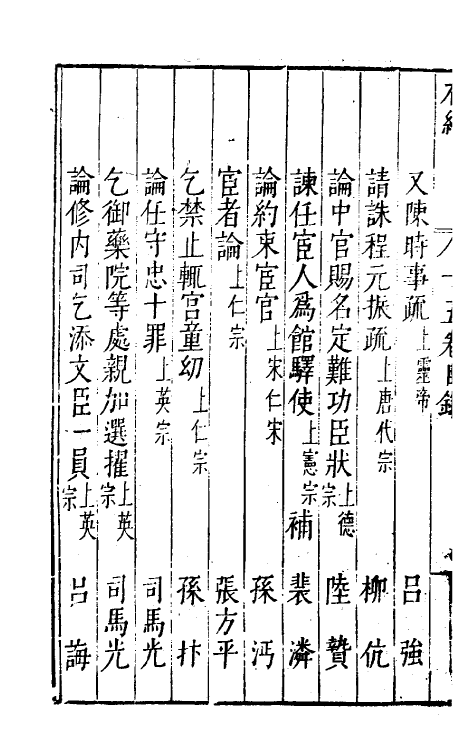 又陳時事疏上靈帝 呂強
請誅程元振疏上唐代宗 柳伉
論中官賜名定難功臣狀上德宗 陸贄
諫任宦人爲館驛使上憲宗補 裴潾
論約束宦官上宋仁宋 孫沔
宦者論上仁宗 張方平
乞禁止輒宫童幼上仁宗 孫抃
論任守忠十罪上英宗 司馬光
乞御藥院等處親加選擢上英宗 司馬光
論修内司乞添文臣一員上英宗 呂誨